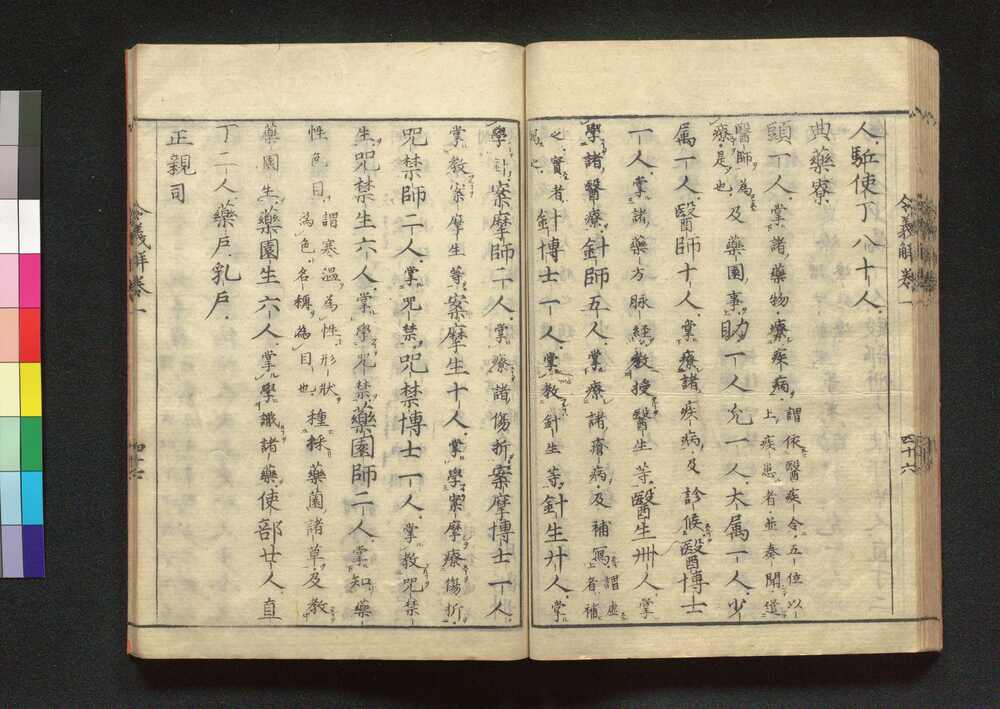 人駈使丁八十人
典藥寮
頭一人掌諸藥物療疾病謂依醫疾令五位以上疾患者並奏聞遣
醫師為療是也及藥園事助一人允一人大属一人少
属一人醫師十人掌療諸疾病及診候醫博士
一人掌諸藥方脈經教授醫生等醫生卌人掌
學諸醫療針師五人掌療諸瘡病及補寫謂虚者補
之實者寫之針博士一人掌教針生等針生廿人掌
學針案摩師二人掌療諸傷折案摩博士一人
掌教案摩生等案摩生十人掌學案摩療傷折
咒禁師二人掌咒禁咒禁博士一人掌教咒禁
生咒禁生六人掌學咒禁藥園師二人掌知藥
性色目謂寒温為性形状為色名稱為目也種採藥園諸草及教
藥園生藥園生六人掌學識諸藥使部廿人直
丁二人藥戸乳戸
正親司
令義解卷一
四十六
令義解卷一